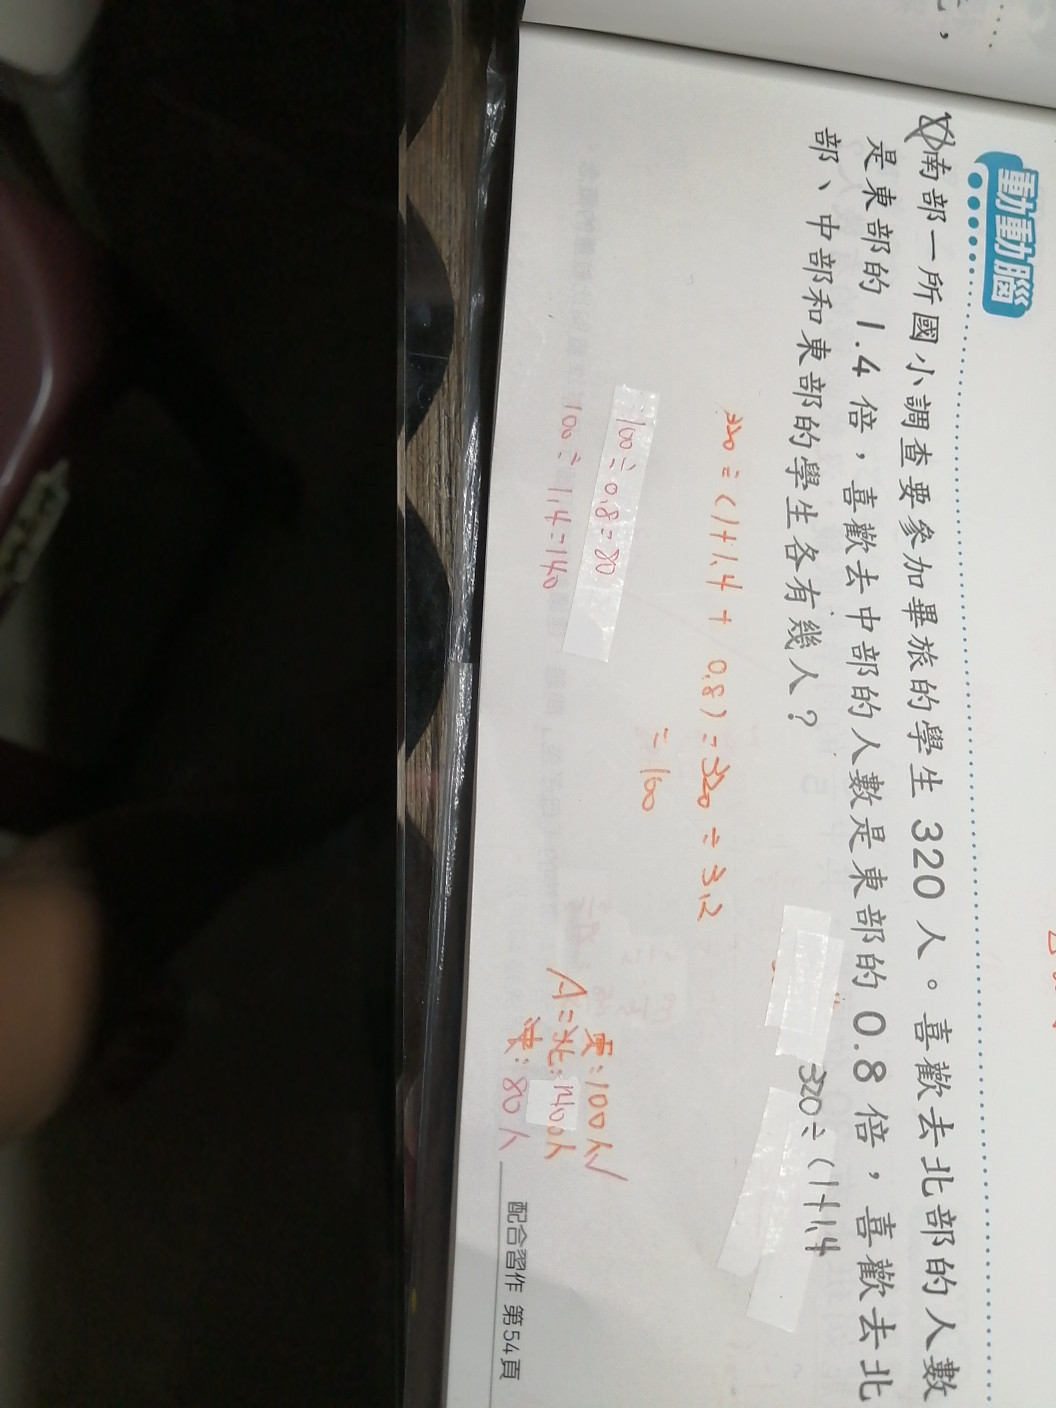 動動腦
南部一所國小調查要參加畢旅的學生 320 人。喜歡去北部的人數
是東部的 1.4 倍，喜歡去中部的人數是東部的 0.8 倍，喜歡去北
部、中部和東部的學生各有幾人？
320÷(1+1.4
320÷(1+1.4+0.8)=320÷3.2
=100
100÷0.8=80
100÷1.4=140
東:100人
A=北:140人
中:80人
配合習作 第54頁